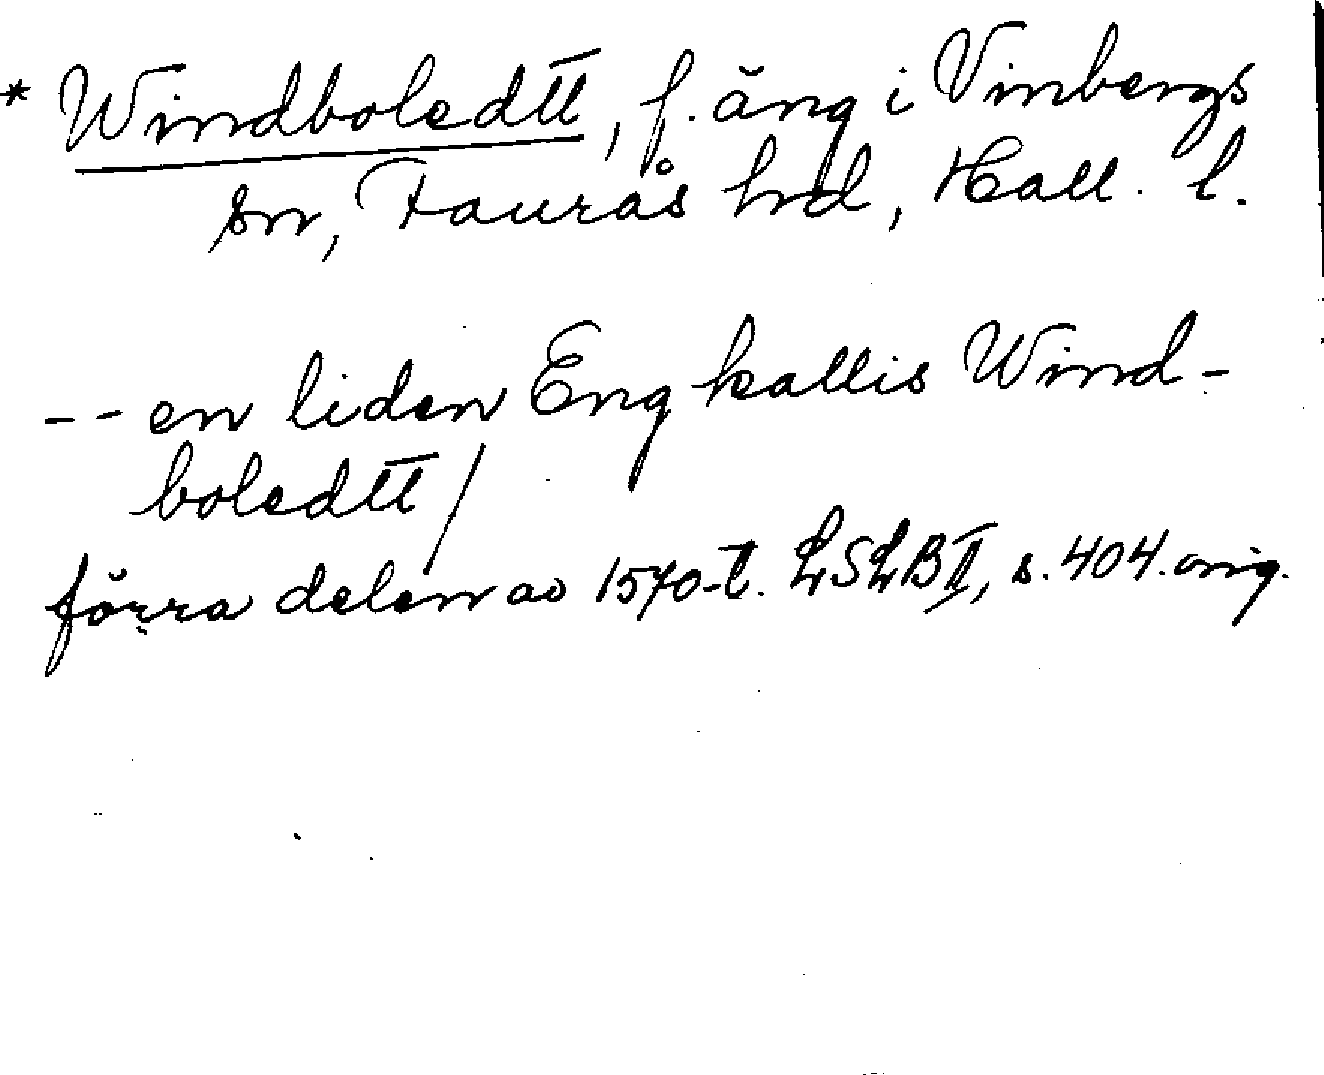 * Windboledtt, f. äng i Vinbergs
sn, Faurås hrd, Hall. l.
-- en liden Eng kallis Wind-
boledtt /
förra delen av 1570-t. LSLB II, s. 404. orig.